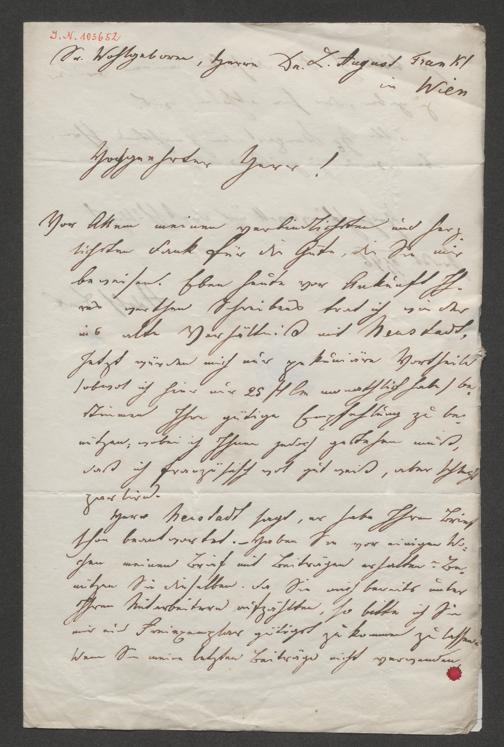 I. N. 103652
Sr. Wohlgeboren, Herrn Dr. L. August Frankl
in Wien
Hochgeehrter Herr!
Vor Allem meinen verbindlichsten und herz-
lichsten Dank für die Güte, die Sie mir
beweisen. Eben heute vor Ankunft Ih-
res werthen Schreibens trat ich wieder
ins alte Verhältniß mit Neustadt,
Jetzt würden mich nur pekuniäre Vortheile
(obwol ich hier nur 25 fl monathlich habe) be-
stimmen Ihre gütige Empfehlung zu be-
nützen, wobei ich Ihnen jedoch gestehen muß,
daß ich französisch wol gut weiß, aber schlecht
parlire.
Herr Neustadt sagt, er habe Ihren Brief
schon beantwortet. – Haben Sie vor einigen Wo-
chen meinen Brief mit Beiträgen erhalten – Be-
nützen Sie dieselben. Da Sie mich bereits unter
Ihren Mitarbeitern aufzählten, so bitte ich Sie
mir ein Freiexemplar gütigst zukommen zu lassen.
Wenn Sie meine letzten Beiträge nicht verwenden